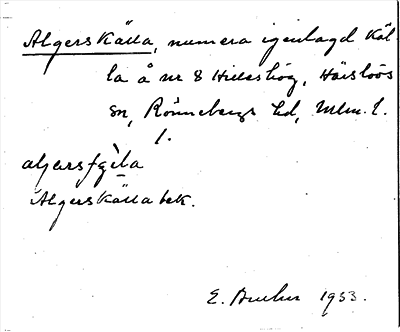 Algers Källa, numera igenlagd Käl
la å nr 8 Hilleshög, Härslövs
sn, Rönnebergs hd, Mlm. l.
1.
Algerskälla bek.
1953.